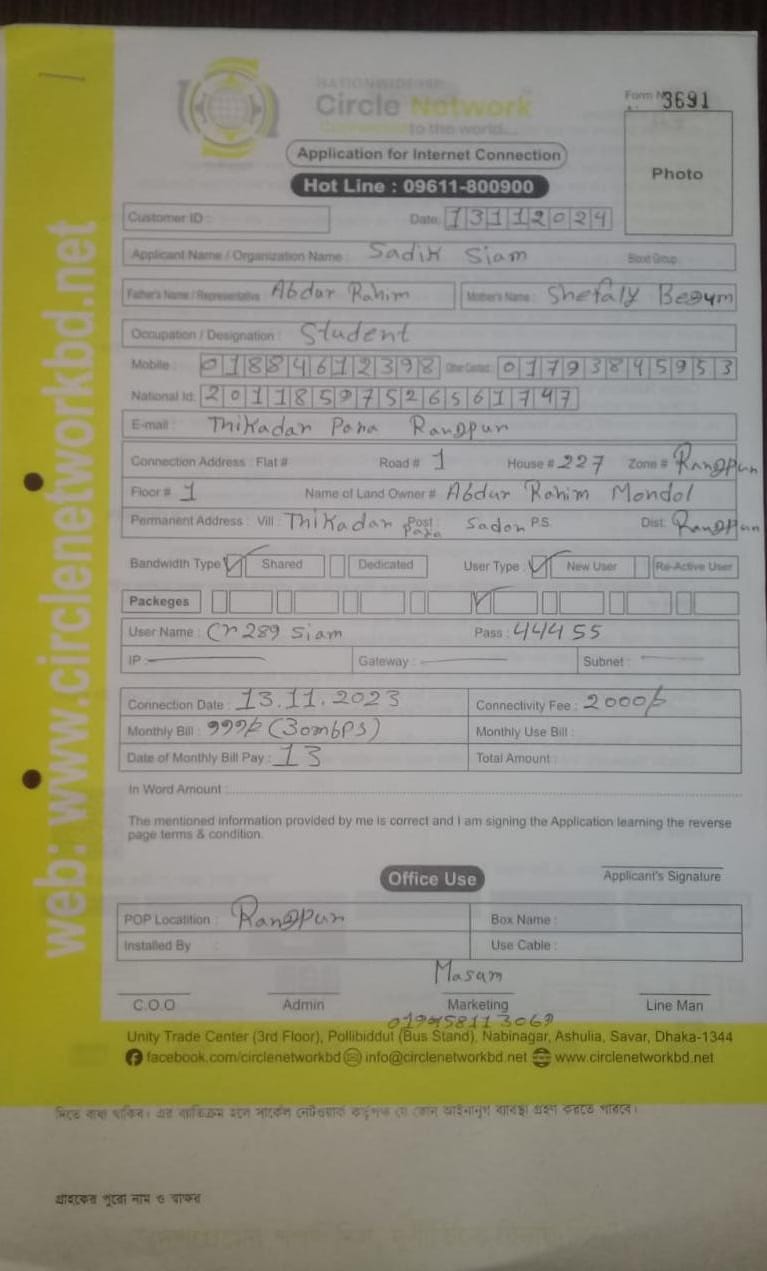 NATIONWIDE ISP
Circle Network
Connected to the world...
Form No 3691
Application for Internet Connection
Photo
Hot Line : 09611-800900
Customer ID :
Date: 13112024
Applicant Name / Organization Name : Sadik Siam Blood Group :
Father's Name / Representative : Abdur Rahim Mother's Name : Shefaly Begum
Occupation / Designation : Student
Mobile : 01884612398 Other Contact : 01793845953
National Id: 20118597526561747
E-mail : Thikadar Para Rangpur
Connection Address : Flat # Road # 1 House # 227 Zone # Rangpur
Floor # 1 Name of Land Owner # Abdur Rahim Mondol
Permanent Address : Vill : Thikadar Para Post : Sador P.S. Dist: Rangpur
Bandwidth Type Shared Dedicated User Type : New User Re-Active User
Packeges
User Name : Cr289 Siam Pass : 444 55
IP : Gateway : Subnet :
Connection Date : 13.11.2023 Connectivity Fee : 2000/-
Monthly Bill : 999/- (30mbPS) Monthly Use Bill :
Date of Monthly Bill Pay : 13 Total Amount :
In Word Amount :
The mentioned information provided by me is correct and I am signing the Application learning the reverse
page terms & condition.
Office Use
Applicant's Signature
POP Locatition : Rangpur Box Name :
Installed By : Use Cable :
Masum
C.O.O Admin Marketing Line Man
Unity Trade Center (3rd Floor), Pollibiddut (Bus Stand), Nabinagar, Ashulia, Savar, Dhaka-1344
facebook.com/circlenetworkbd info@circlenetworkbd.net www.circlenetworkbd.net
web: www.circlenetworkbd.net
দিতে বাধ্য থাকিব। এর ব্যতিক্রম হলে সার্কেল নেটওয়ার্ক কর্তৃপক্ষ যে কোন আইনানুগ ব্যবস্থা গ্রহণ করতে পারবে।
গ্রাহকের পুরো নাম ও স্বাক্ষর